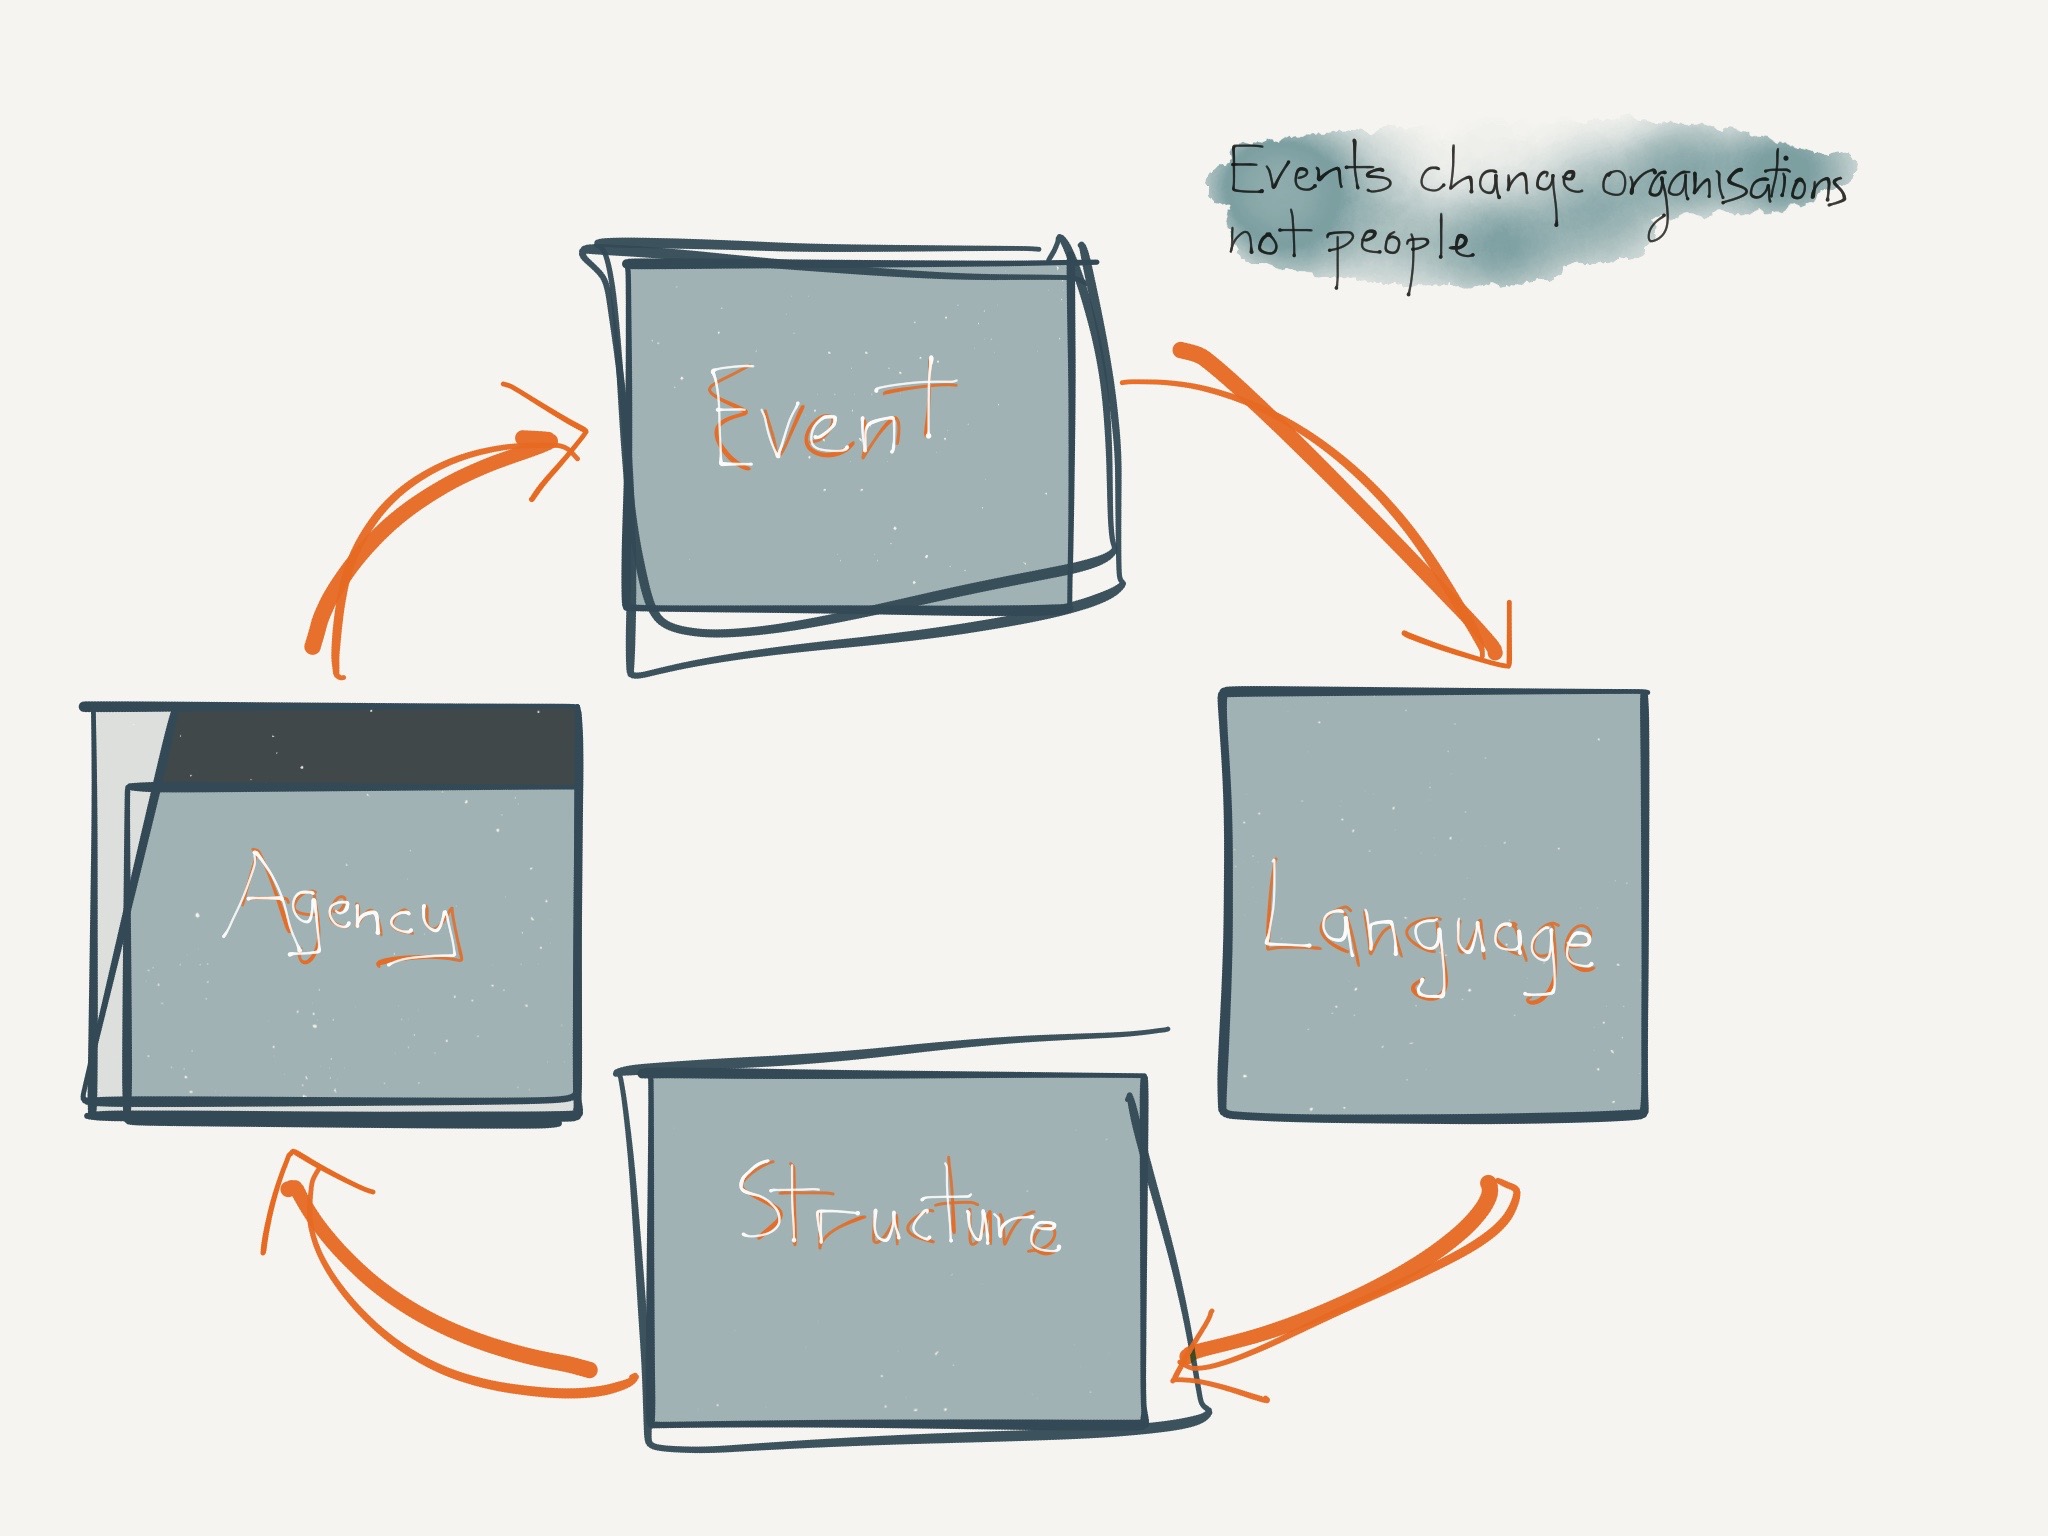 Events change organisations
not people
Event
Agency
Language
Structure